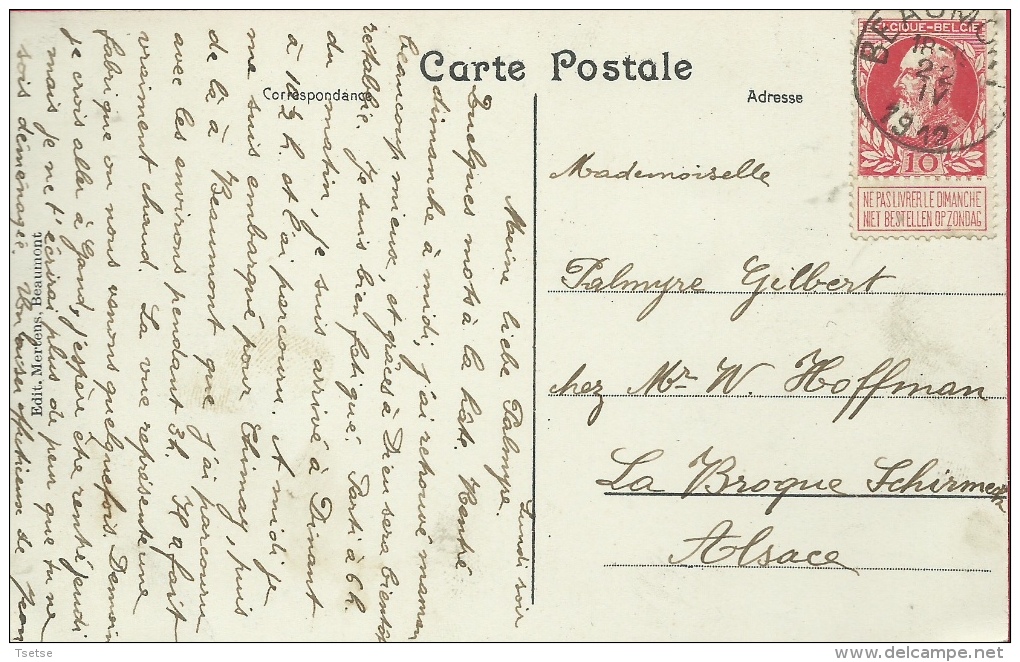 Carte Postale
Correspondance
Adresse
BELGIQUE-BELGIË
10
NE PAS LIVRER LE DIMANCHE
NIET BESTELLEN OP ZONDAG
BEAUMO
18-
22
IV
1912
Lundi soir
Meine liebe Palmyre.
Quelques mots à la hâte. Rentré
dimanche à midi, j'ai retrouvé maman
beaucoup mieux, et grâces à Dieu sera bientôt
rétablie. Je suis bien fatigué. Parti à 6h
du matin, je suis arrivé à Dinant
à 10½h. et l'ai parcouru. A midi je
me suis embarqué pour Chimay, puis
de là à Beaumont que j'ai parcouru
avec les environs pendant 3h. Il a fait
vraiment chaud. La vue représente une
fabrique où nous venons quelquefois. Demain
je crois aller à Gand, j'espère être rentré jeudi
mais je ne t'écrirai plus de peu que tu ne
sois déménagée. Un baiser affectueux de Jean
Edit. Mertens, Beaumont
Mademoiselle
Palmyre Gilbert
chez Mr. W. Hoffman
La Broque Schirmeck
Alsace
Tsetse
www.delcampe.net